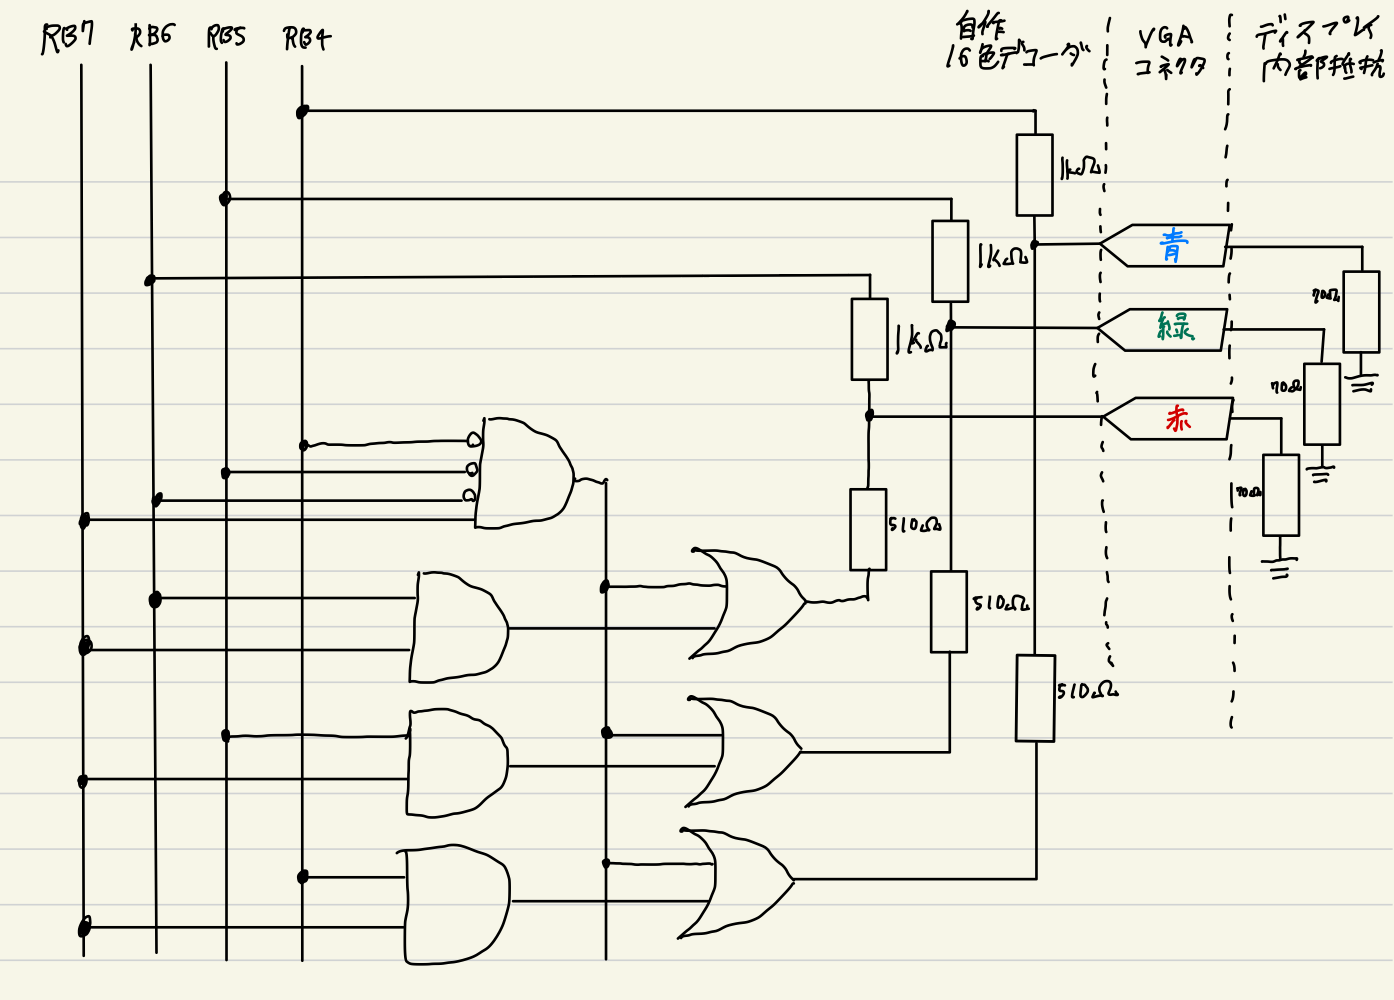 RB7 RB6 RB5 RB4
自作
16色デコーダ
VGA
コネクタ
ディスプレイ
内部抵抗
1kΩ
1kΩ
1kΩ
青
緑
赤
70Ω
70Ω
70Ω
510Ω
510Ω
510Ω